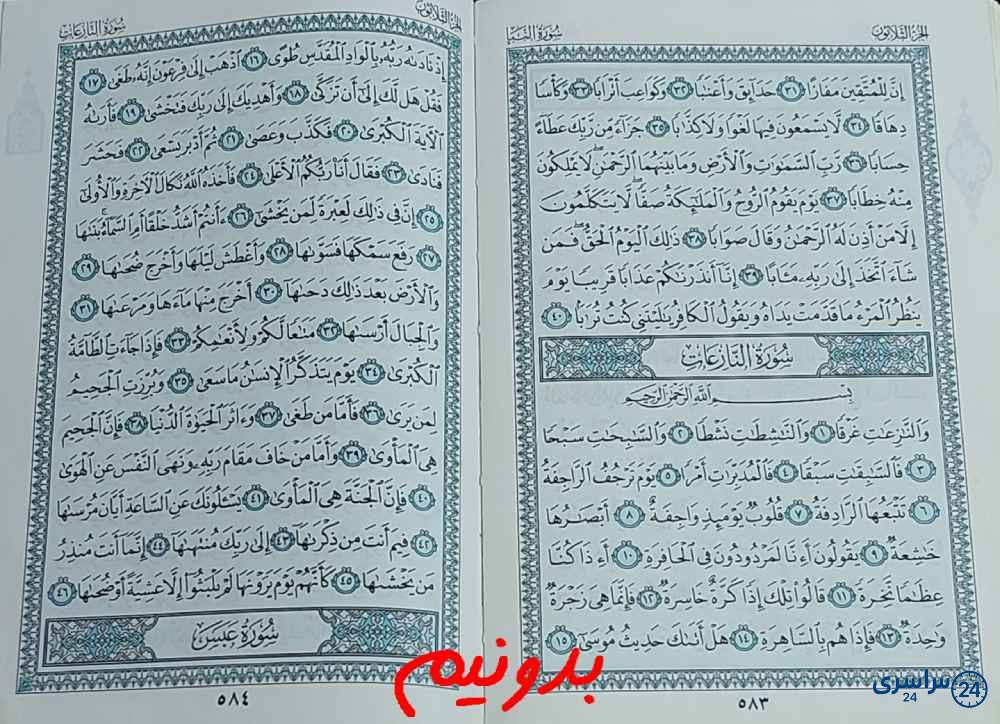 الجزء الثلاثون
سورة النبإ
إِنَّ لِلْمُتَّقِينَ مَفَازًا ٣١ حَدَآئِقَ وَأَعْنَٰبًا ٣٢ وَكَوَاعِبَ أَتْرَابًا ٣٣ وَكَأْسًا
دِهَاقًا ٣٤ لَّا يَسْمَعُونَ فِيهَا لَغْوًا وَلَا كِذَّٰبًا ٣٥ جَزَآءً مِّن رَّبِّكَ عَطَآءً
حِسَابًا ٣٦ رَّبِّ ٱلسَّمَٰوَٰتِ وَٱلْأَرْضِ وَمَا بَيْنَهُمَا ٱلرَّحْمَٰنِ لَا يَمْلِكُونَ
مِنْهُ خِطَابًا ٣٧ يَوْمَ يَقُومُ ٱلرُّوحُ وَٱلْمَلَٰٓئِكَةُ صَفًّا لَّا يَتَكَلَّمُونَ
إِلَّا مَنْ أَذِنَ لَهُ ٱلرَّحْمَٰنُ وَقَالَ صَوَابًا ٣٨ ذَٰلِكَ ٱلْيَوْمُ ٱلْحَقُّ فَمَن
شَآءَ ٱتَّخَذَ إِلَىٰ رَبِّهِۦ مَـَٔابًا ٣٩ إِنَّآ أَنذَرْنَٰكُمْ عَذَابًا قَرِيبًا يَوْمَ
يَنظُرُ ٱلْمَرْءُ مَا قَدَّمَتْ يَدَاهُ وَيَقُولُ ٱلْكَافِرُ يَٰلَيْتَنِى كُنتُ تُرَٰبًۢا ٤٠
سُورَةُ النَّازِعَاتِ
بِسْمِ اللَّهِ الرَّحْمَٰنِ الرَّحِيمِ
وَٱلنَّٰزِعَٰتِ غَرْقًا ١ وَٱلنَّٰشِطَٰتِ نَشْطًا ٢ وَٱلسَّٰبِحَٰتِ سَبْحًا
٣ فَٱلسَّٰبِقَٰتِ سَبْقًا ٤ فَٱلْمُدَبِّرَٰتِ أَمْرًا ٥ يَوْمَ تَرْجُفُ ٱلرَّاجِفَةُ
٦ تَتْبَعُهَا ٱلرَّادِفَةُ ٧ قُلُوبٌ يَوْمَئِذٍ وَاجِفَةٌ ٨ أَبْصَٰرُهَا
خَٰشِعَةٌ ٩ يَقُولُونَ أَءِنَّا لَمَرْدُودُونَ فِى ٱلْحَافِرَةِ ١٠ أَءِذَا كُنَّا
عِظَٰمًا نَّخِرَةً ١١ قَالُوا۟ تِلْكَ إِذًا كَرَّةٌ خَاسِرَةٌ ١٢ فَإِنَّمَا هِىَ زَجْرَةٌ
وَٰحِدَةٌ ١٣ فَإِذَا هُم بِٱلسَّاهِرَةِ ١٤ هَلْ أَتَىٰكَ حَدِيثُ مُوسَىٰٓ ١٥
٥٨٣
الجزء الثلاثون
سورة النازعات
إِذْ نَادَىٰهُ رَبُّهُۥ بِٱلْوَادِ ٱلْمُقَدَّسِ طُوًى ١٦ ٱذْهَبْ إِلَىٰ فِرْعَوْنَ إِنَّهُۥ طَغَىٰ ١٧
فَقُلْ هَل لَّكَ إِلَىٰٓ أَن تَزَكَّىٰ ١٨ وَأَهْدِيَكَ إِلَىٰ رَبِّكَ فَتَخْشَىٰ ١٩ فَأَرَىٰهُ
ٱلْءَايَةَ ٱلْكُبْرَىٰ ٢٠ فَكَذَّبَ وَعَصَىٰ ٢١ ثُمَّ أَدْبَرَ يَسْعَىٰ ٢٢ فَحَشَرَ
فَنَادَىٰ ٢٣ فَقَالَ أَنَا۠ رَبُّكُمُ ٱلْأَعْلَىٰ ٢٤ فَأَخَذَهُ ٱللَّهُ نَكَالَ ٱلْءَاخِرَةِ وَٱلْأُولَىٰٓ
٢٥ إِنَّ فِى ذَٰلِكَ لَعِبْرَةً لِّمَن يَخْشَىٰٓ ٢٦ ءَأَنتُمْ أَشَدُّ خَلْقًا أَمِ ٱلسَّمَآءُ بَنَىٰهَا
٢٧ رَفَعَ سَمْكَهَا فَسَوَّىٰهَا ٢٨ وَأَغْطَشَ لَيْلَهَا وَأَخْرَجَ ضُحَىٰهَا ٢٩
وَٱلْأَرْضَ بَعْدَ ذَٰلِكَ دَحَىٰهَآ ٣٠ أَخْرَجَ مِنْهَا مَآءَهَا وَمَرْعَىٰهَا ٣١
وَٱلْجِبَالَ أَرْسَىٰهَا ٣٢ مَتَٰعًا لَّكُمْ وَلِأَنْعَٰمِكُمْ ٣٣ فَإِذَا جَآءَتِ ٱلطَّآمَّةُ
ٱلْكُبْرَىٰ ٣٤ يَوْمَ يَتَذَكَّرُ ٱلْإِنسَٰنُ مَا سَعَىٰ ٣٥ وَبُرِّزَتِ ٱلْجَحِيمُ
لِمَن يَرَىٰ ٣٦ فَأَمَّا مَن طَغَىٰ ٣٧ وَءَاثَرَ ٱلْحَيَوٰةَ ٱلدُّنْيَا ٣٨ فَإِنَّ ٱلْجَحِيمَ
هِىَ ٱلْمَأْوَىٰ ٣٩ وَأَمَّا مَنْ خَافَ مَقَامَ رَبِّهِۦ وَنَهَى ٱلنَّفْسَ عَنِ ٱلْهَوَىٰ
٤٠ فَإِنَّ ٱلْجَنَّةَ هِىَ ٱلْمَأْوَىٰ ٤١ يَسْـَٔلُونَكَ عَنِ ٱلسَّاعَةِ أَيَّانَ مُرْسَىٰهَا
٤٢ فِيمَ أَنتَ مِن ذِكْرَىٰهَآ ٤٣ إِلَىٰ رَبِّكَ مُنتَهَىٰهَآ ٤٤ إِنَّمَآ أَنتَ مُنذِرُ
مَن يَخْشَىٰهَا ٤٥ كَأَنَّهُمْ يَوْمَ يَرَوْنَهَا لَمْ يَلْبَثُوٓا۟ إِلَّا عَشِيَّةً أَوْ ضُحَىٰهَا ٤٦
سُورَةُ عَبَسَ
٥٨٤
بدونیم
سراسری 24
24